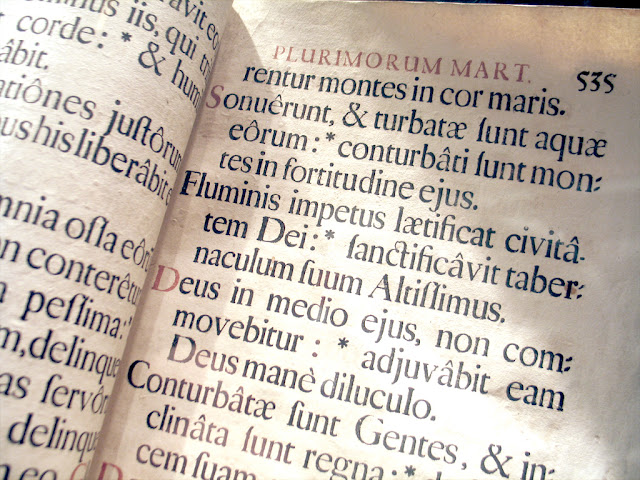 iis, qui
corde: * & hum
âbit.
atiônes juſtôrum
his liberâbit
mnia oſſa eôr
conterêt
peſſima: *
delinque
as ſervôr
delinqu
PLURIMORUM MART. 535
rentur montes in cor maris.
Sonuêrunt, & turbatæ ſunt aquæ
eôrum: * conturbâti ſunt mon-
tes in fortitudine ejus.
Fluminis impetus lætificat civitâ-
tem Dei: * ſanctificâvit taber-
naculum ſuum Altiſſimus.
Deus in medio ejus, non com-
movebitur: * adjuvâbit eam
Deus manè diluculo.
Conturbâtæ ſunt Gentes, & in-
clinâta ſunt regna: *
cem ſuam